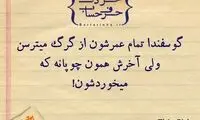 حرف
حساب
گوسفندا تمام عمرشون از گرگ میترسن
ولی آخرش همون چوپانه که
میخوردشون!